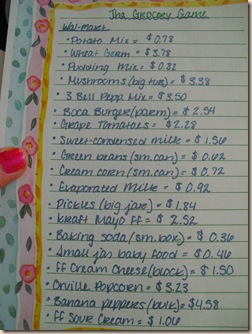 The Grocery Game
Wal-Mart
• Potato Mix = $0.78
• Wheat Germ = $3.78
• Pudding Mix = $0.32
• Mushrooms (big tub) = $3.38
• 3 Bell Pepp Mix = $3.50
• Boca Burger (parm) = $2.54
• Grape Tomatoes = $2.28
• Sweet-condensed milk = $1.56
• Green beans (sm.can) = $0.62
• Cream corn (sm.can) = $0.72
• Evaporated Milk = $0.92
• Pickles (big jar) = $1.84
• Kraft Mayo FF = $2.52
• Baking soda (sm.box) = $0.46
• Small jar baby food = $0.46
• FF Cream Cheese (block) = $1.50
• Orville Popcorn = $3.23
• Banana peppers (bulk) = $4.58
• FF Sour Cream = $1.06